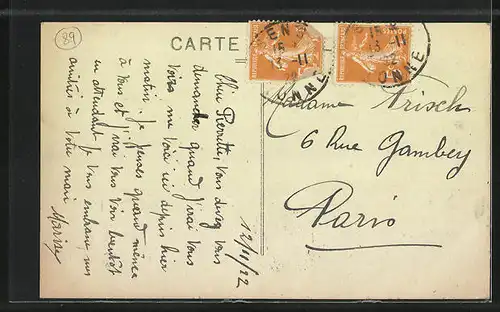 89
CARTE
ENS
15
13 - 11
NNE
15
13 - 11
ONNE
Chère Pierrette, vous devez vous
demander quand j'irai vous
voir, me voici ici depuis hier
matin. je penses quand même
à vous et j'irai vous voir bientôt
en attendant je vous embrasse mes
amitiés à votre mari
Marise
12/11/22
Madame Frisch
6 Rue Gambey
Paris